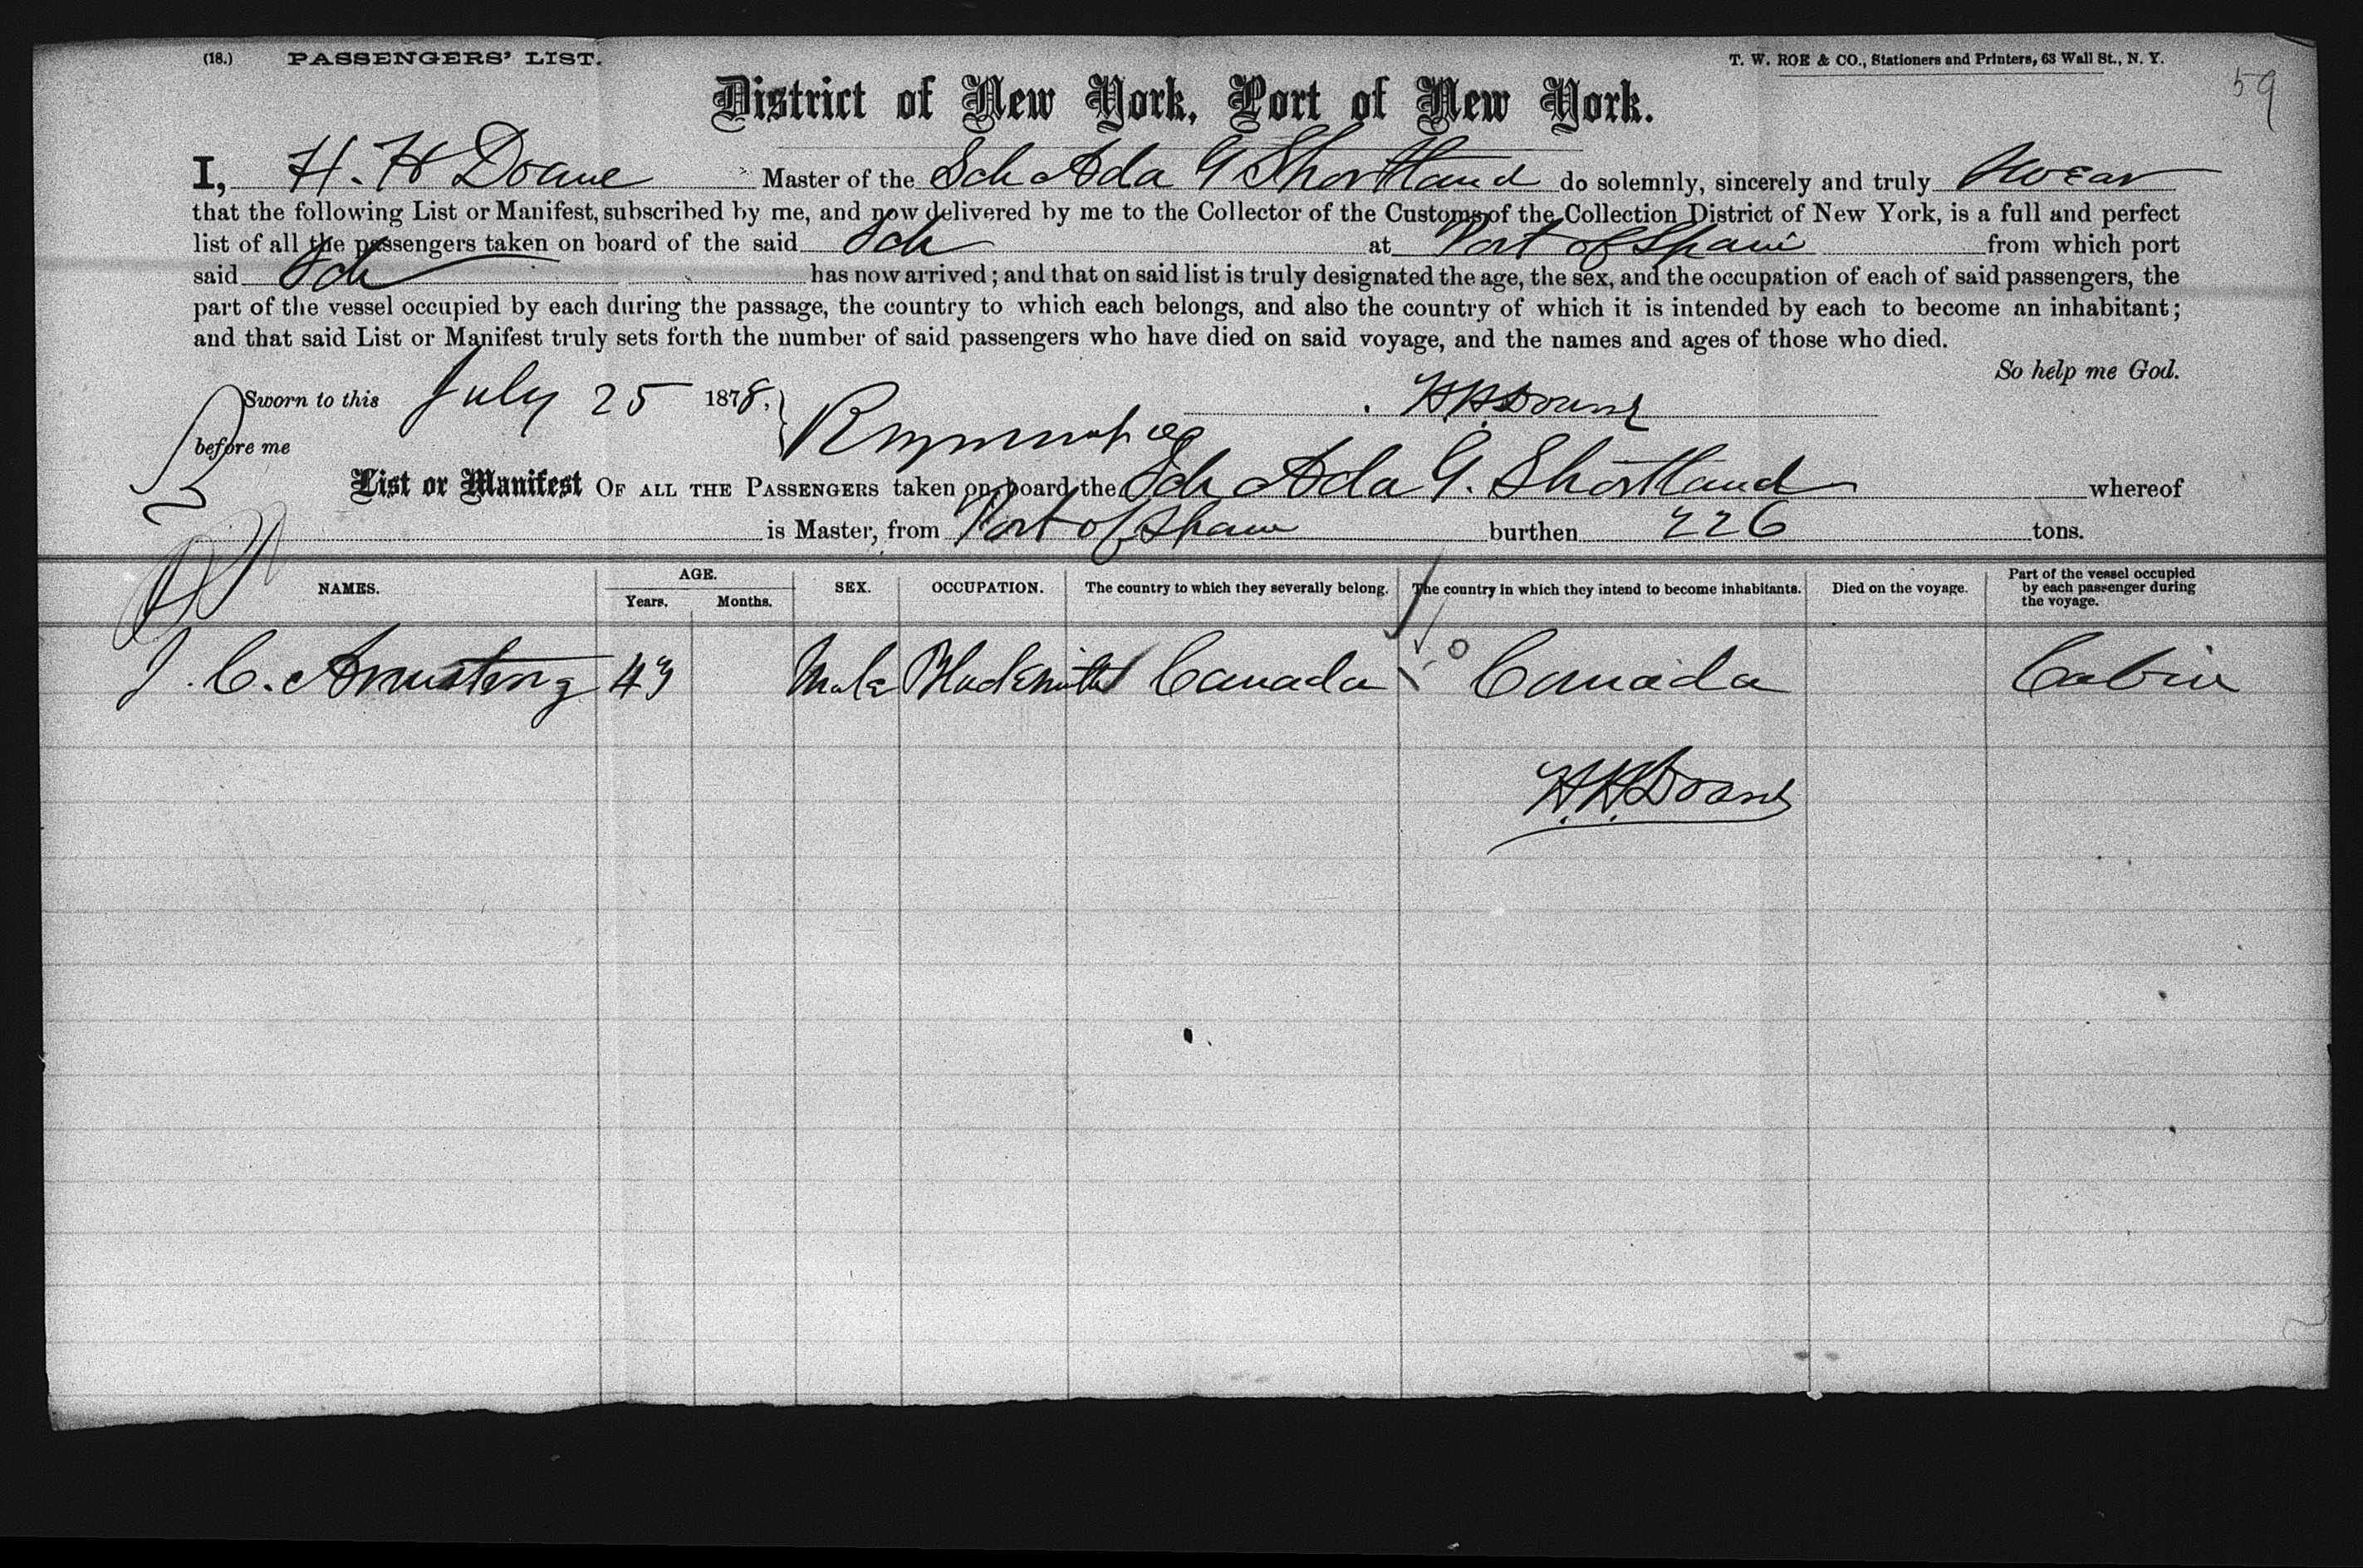 (18.) PASSENGERS' LIST.
T. W. ROE & CO., Stationers and Printers, 63 Wall St., N. Y.
59
District of New York, Port of New York.
I, H. H Doane Master of the Sch Ada G Shortland do solemnly, sincerely and truly swear
that the following List or Manifest, subscribed by me, and now delivered by me to the Collector of the Customs of the Collection District of New York, is a full and perfect
list of all the passengers taken on board of the said Sch at Port of Spain from which port
said Sch has now arrived; and that on said list is truly designated the age, the sex, and the occupation of each of said passengers, the
part of the vessel occupied by each during the passage, the country to which each belongs, and also the country of which it is intended by each to become an inhabitant;
and that said List or Manifest truly sets forth the number of said passengers who have died on said voyage, and the names and ages of those who died.
So help me God.
Sworn to this July 25 1878,
H H Doane
before me
List or Manifest OF ALL THE PASSENGERS taken on board the Sch Ada G. Shortland whereof
is Master, from Port of Spain burthen 226 tons.
NAMES. AGE. Years. Months. SEX. OCCUPATION. The country to which they severally belong. The country in which they intend to become inhabitants. Died on the voyage. Part of the vessel occupied by each passenger during the voyage.
J. C. Armstrong 43 Male Blacksmith Canada Canada Cabin
H. H. Doane